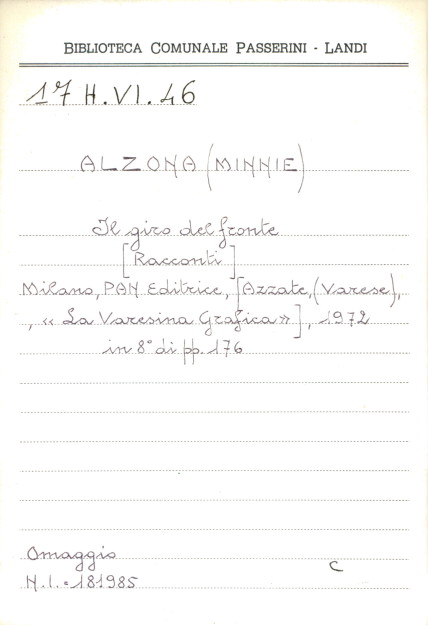 BIBLIOTECA COMUNALE PASSERINI - LANDI
17 H.VI.46
ALZONA (MINNIE)
Il giro del fronte
[Racconti]
Milano, PAN Editrice, [Azzate, (Varese),
, « La Varesina Grafica»], 1972
in 8° di pp. 176
Omaggio
C
N.I. = 181985